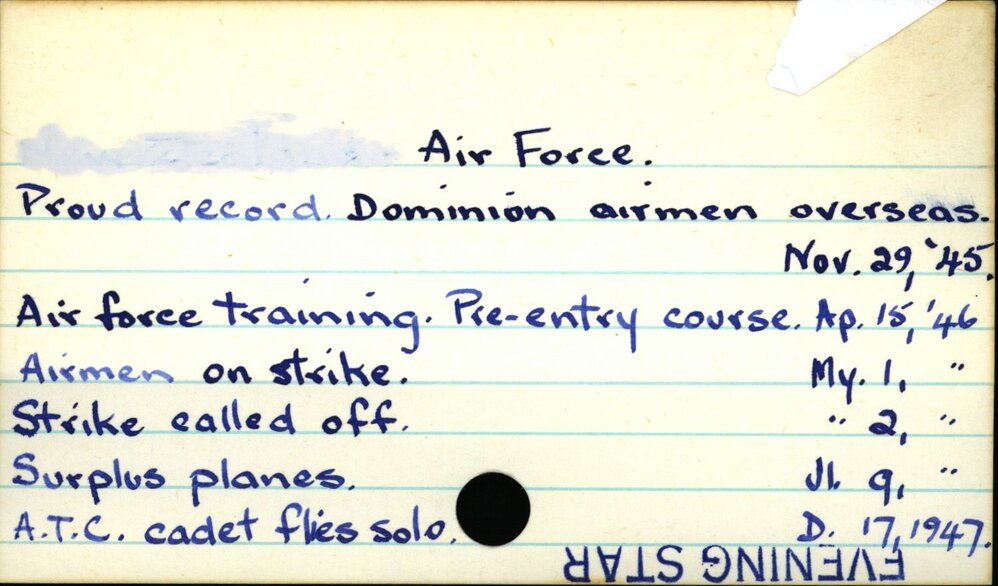 Air Force.
Proud record. Dominion airmen overseas.
Nov. 29, '45.
Air force training. Pre-entry course. Ap. 15, '46
Airmen on strike. My. 1, "
Strike called off. " 2, "
Surplus planes. Jl. 9, "
A.T.C. cadet flies solo. D. 17, 1947.
EVENING STAR